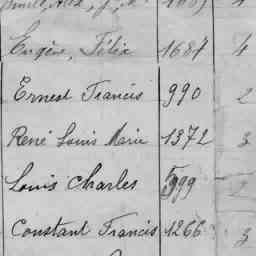 Eugène, Félix 1687 4
Ernest Francis 990 2
René Louis Marie 1372 3
Louis Charles 999 2
Constant Francis 1266 3